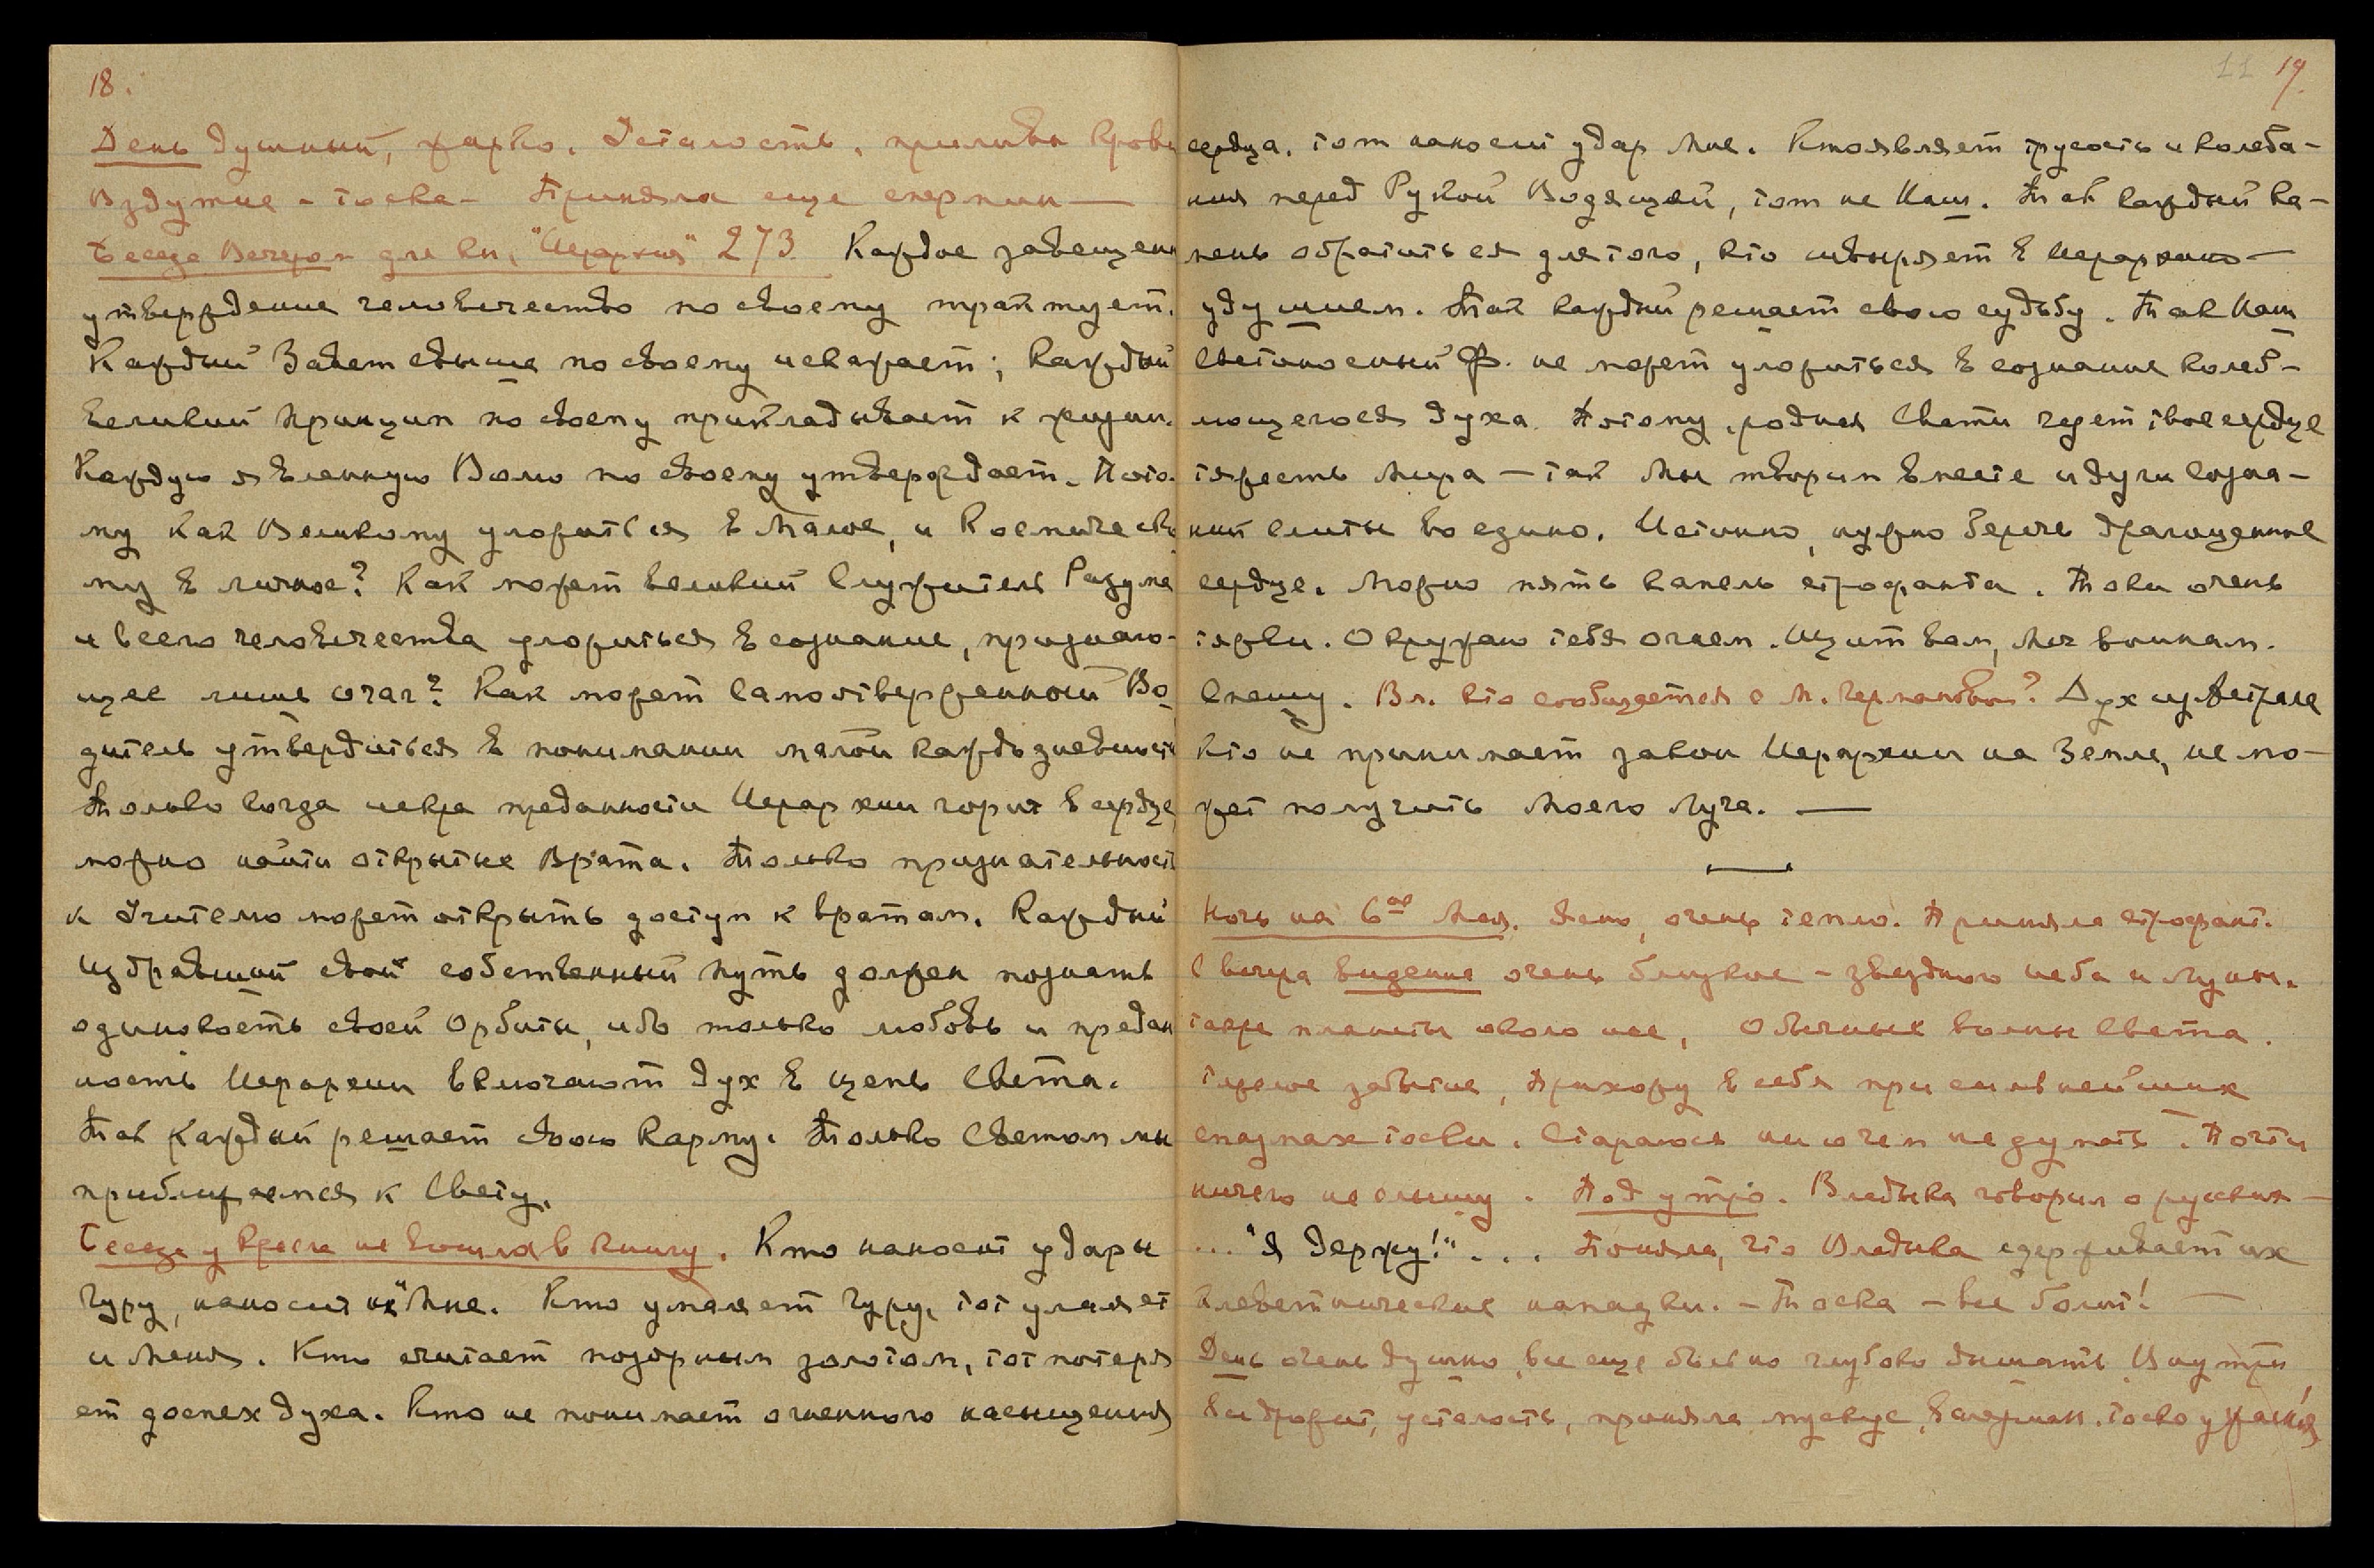 18.
День душный, жарко. Усталость, приливы крови
Вздутие – тоска – Приняла еще спермин —
Беседа Вечером для кн. "Иерархия" 273 Каждое завещанн
утверждение человечество по своему трактует.
Каждый Завет свыше по своему искажает; каждый
великий принцип по своему прикладывает к жизни.
Каждую явленную Волю по своему утверждает. Пото-
му как Великому уложиться в Малое, и Космическо
му в личное? Как может великий Служитель Разума
и всего человечества уложиться в сознание, признаю-
щее лишь очаг? Как может самоотверженный Во
дитель утвердиться в понимании малой каждодневности
Только когда искра преданности Иерархии горит в сердце,
можно найти открытые Врата. Только признательность
к Учителю может открыть доступ к вратам. Каждый
избравший свой собственный путь должен познать
одинокость своей орбиты, ибо только любовь и предан
ность Иерархии включают дух в цепь Света.
Так каждый решает свою карму. Только Светом мы
приближаемся к Свету.
Беседа у Кресла не вошла в книгу. Кто наносит удары
Гуру, наносит и Мне. Кто умаляет Гуру, тот умаляет
и Меня. Кто считает позорным золотом, тот потеря
ет доспех духа. Кто не понимает огненного насыщения
11 19.
сердца, тот наносит удар Мне. Кто являет трусость и колеба-
ния перед Рукой Водящей, тот не Наш. Так каждый ка-
мень обратится для того, кто швыряет в Иерархию —
удушием. Так каждый решает свою судьбу. Так Наш
Светоносный Ф. не может уложиться в сознание колеб-
лющегося духа. Потому, родная Свати чует твое сердце
тяжесть Мира – так Мы творим вместе и души созна-
ний слиты во едино. Истинно, нужно беречь драгоценное
сердце. Можно пять капель строфанта. Токи очень
тяжки. Окружаю тебя огнем. Щит вам, Меч воинам.
Спешу. Вл. кто сообщается с М. Германовой? Дух из Астрала
Кто не принимает закон Иерархии на Земле, не мо-
жет получить Моего Луча. —
Ночь на 6ое Мая. Ясно, очень тепло. Приняла строфант.
С вечера видение очень близкое – звездного неба и Луны.
также планеты около нее, Обычные волны Света.
Тяжелое забытие, Прихожу в себя при сильнейших
спазмах тоски. Стараюсь ни о чем не думать. Почти
ничего не слышу. Под утро. Владыка говорил о русских –
... "Я держу!"... Поняла, что Владыка сдерживает их
клеветнические нападки. – Тоска – все болит! —
День очень душно, все еще больно глубоко дышать. Внутри
все дрожит, усталость, приняла мускус, валериан. Тоска ужасная